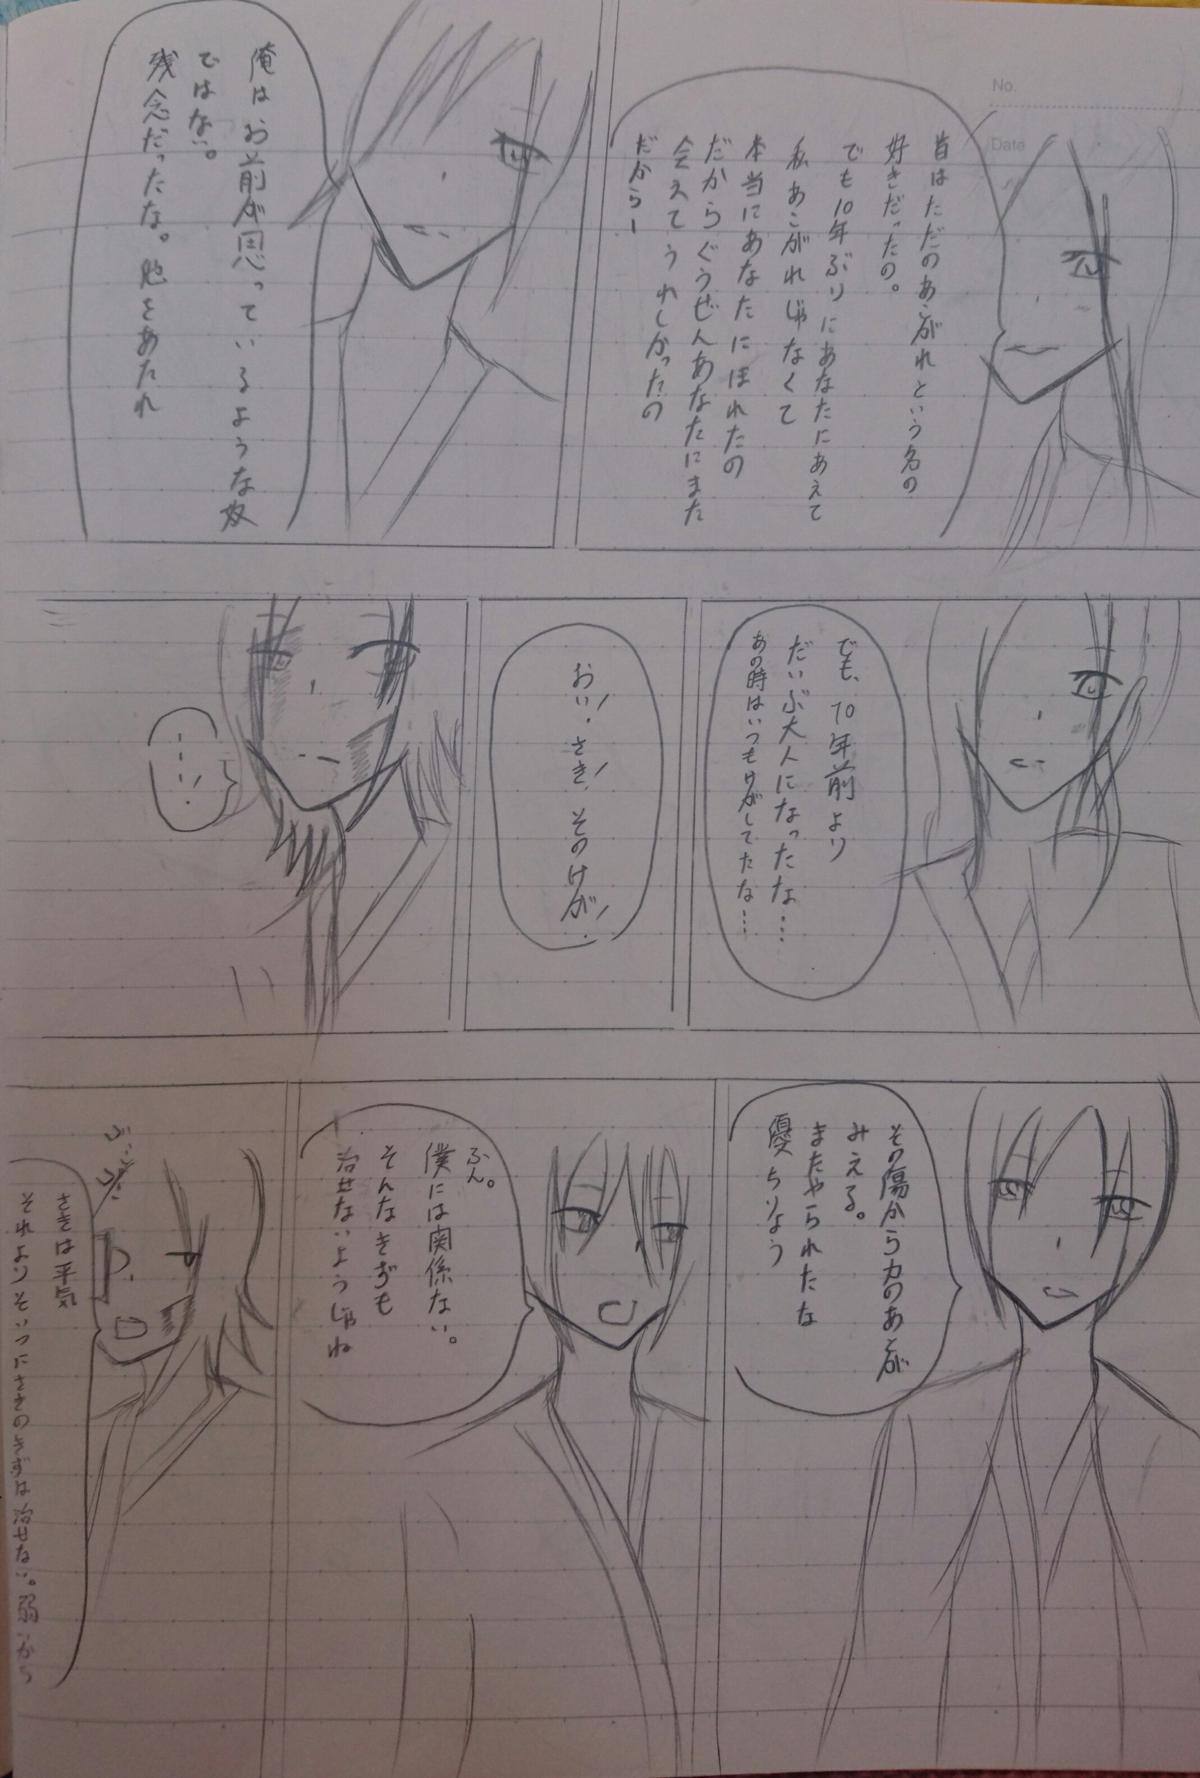 No.
Date
昔はただのあこがれという名の
好きだったの。
でも10年ぶりにあなたにあえて
私あこがれじゃなくて
本当にあなたにほれたの
だからぐうぜんあなたにまた
会えてうれしかったの
だからー
俺はお前が思っているような奴
ではない。
残念だったな。他をあたれ
でも、10年前より
だいぶ大人になったな…
あの時はいつもけがしてたな…
おい!さき!そのけが!
…!
その傷から力のあとが
みえる。
またやられたな
優ちりょう
ふん。
僕には関係ない。
そんなきずも
治せないようじゃね
さきは平気
それよりそいつにさきのきずは治せない。弱いから